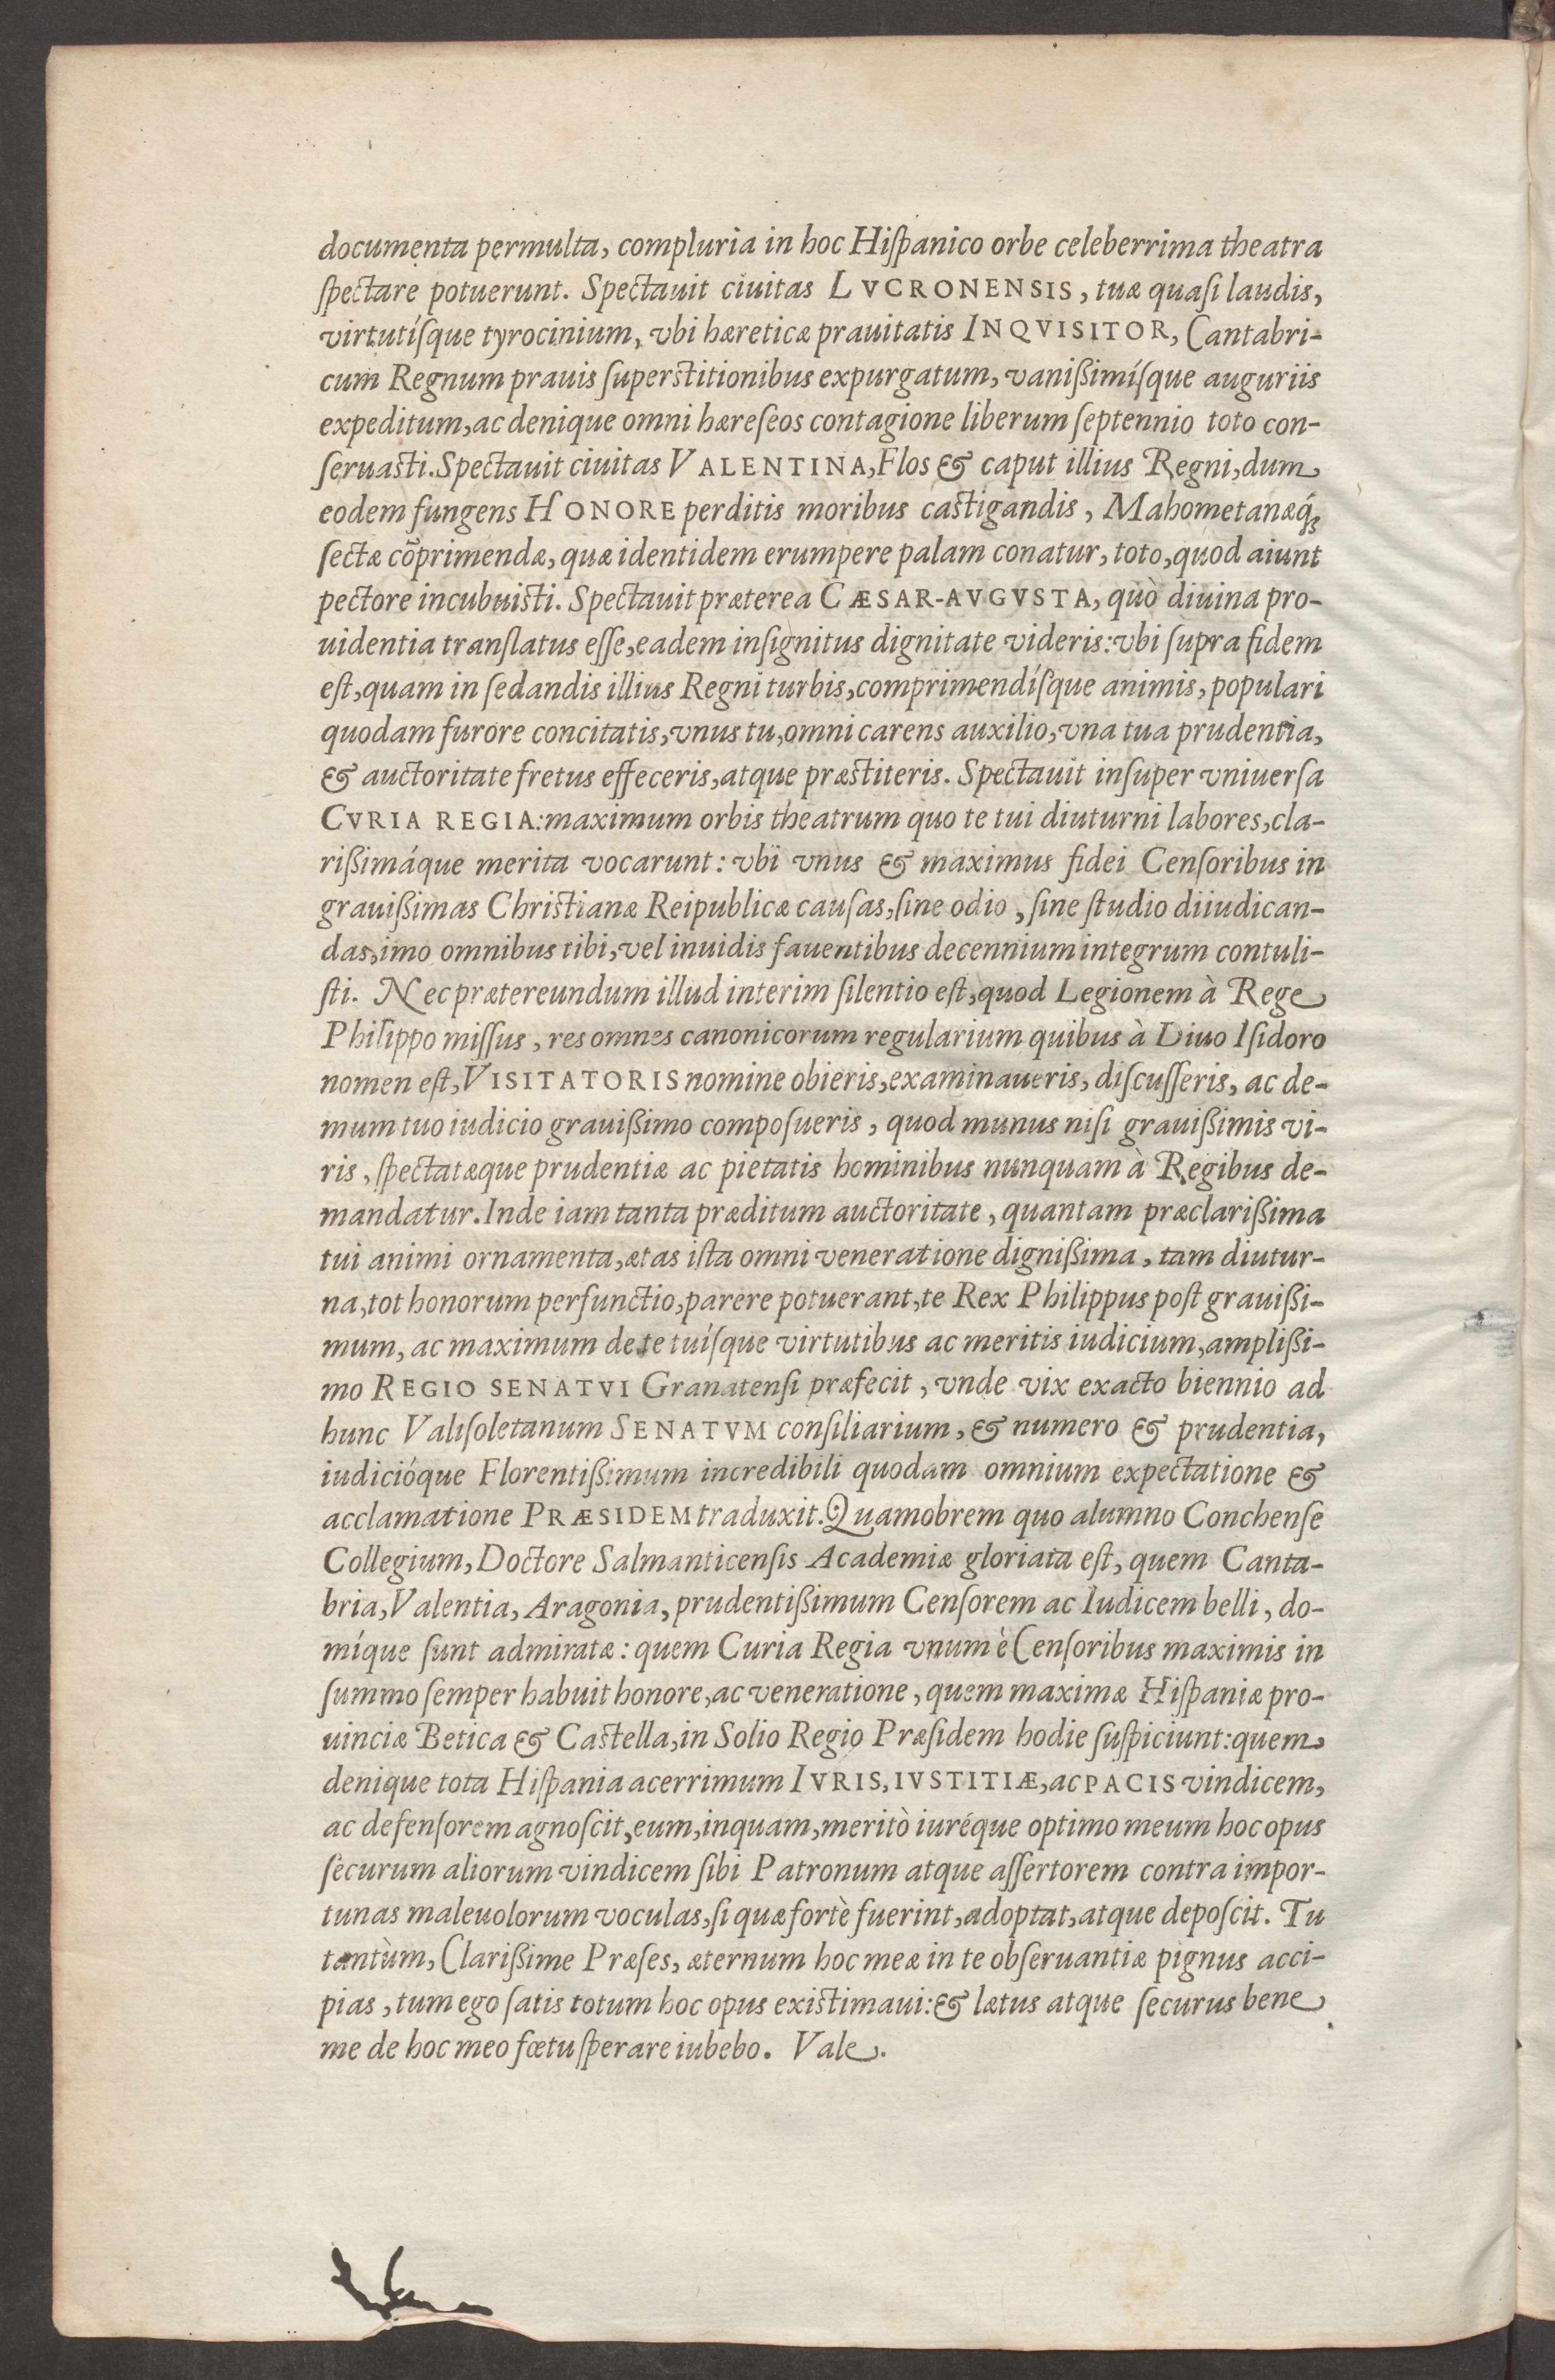 documenta permulta, compluria in hoc Hiſpanico orbe celeberrima theatra
ſpectare potuerunt. Spectauit ciuitas LVCRONENSIS, tuæ quaſi laudis,
virtutíſque tyrocinium, vbi hæreticæ prauitatis INQVISITOR, Cantabri-
cum Regnum prauis ſuperstitionibus expurgatum, vanißimíſque auguriis
expeditum, ac denique omni hæreſeos contagione liberum ſeptennio toto con-
ſeruasti. Spectauit ciuitas VALENTINA, Flos & caput illius Regni, dum
eodem fungens HONORE perditis moribus castigandis, Mahometanæq́;
ſectæ cõprimendæ, quæ identidem erumpere palam conatur, toto, quod aiunt
pectore incubuisti. Spectauit præterea CÆSAR-AVGVSTA, quò diuina pro-
uidentia tranſlatus eſſe, eadem inſignitus dignitate videris: vbi ſupra fidem
eſt, quam in ſedandis illius Regni turbis, comprimendíſque animis, populari
quodam furore concitatis, vnus tu, omni carens auxilio, vna tua prudentia,
& auctoritate fretus effeceris, atque præstiteris. Spectauit inſuper vniuerſa
CVRIA REGIA: maximum orbis theatrum quo te tui diuturni labores, cla-
rißimáque merita vocarunt: vbi vnus & maximus fidei Cenſoribus in
grauißimas Christianæ Reipublicæ cauſas, ſine odio, ſine ſtudio diiudican-
das, imo omnibus tibi, vel inuidis fauentibus decennium integrum contuli-
ſti. Nec prætereundum illud interim ſilentio eſt, quod Legionem à Rege
Philippo miſſus, res omnes canonicorum regularium quibus à Diuo Iſidoro
nomen eſt, VISITATORIS nomine obieris, examinaueris, diſcuſſeris, ac de-
mum tuo iudicio grauißimo compoſueris, quod munus niſi grauißimis vi-
ris, ſpectatæque prudentiæ ac pietatis hominibus nunquam à Regibus de-
mandatur. Inde iam tanta præditum auctoritate, quantam præclarißima
tui animi ornamenta, ætas iſta omni veneratione dignißima, tam diutur-
na, tot honorum perfunctio, parere potuerant, te Rex Philippus poſt grauißi-
mum, ac maximum de te tuíſque virtutibus ac meritis iudicium, amplißi-
mo REGIO SENATVI Granatenſi præfecit, vnde vix exacto biennio ad
hunc Valiſoletanum SENATVM conſiliarium, & numero & prudentia,
iudicióque Florentißimum incredibili quodam omnium expectatione &
acclamatione PRÆSIDEM traduxit. Quamobrem quo alumno Conchenſe
Collegium, Doctore Salmanticenſis Academiæ gloriata eſt, quem Canta-
bria, Valentia, Aragonia, prudentißimum Cenſorem ac Iudicem belli, do-
míque ſunt admiratæ: quem Curia Regia vnum è Cenſoribus maximis in
ſummo ſemper habuit honore, ac veneratione, quem maximæ Hiſpaniæ pro-
uinciæ Betica & Castella, in Solio Regio Præſidem hodie ſuſpiciunt: quem
denique tota Hiſpania acerrimum IVRIS, IVSTITIÆ, ac PACIS vindicem,
ac defenſorem agnoſcit, eum, inquam, meritò iuréque optimo meum hoc opus
ſecurum aliorum vindicem ſibi Patronum atque aſſertorem contra impor-
tunas maleuolorum voculas, ſi quæ fortè fuerint, adoptat, atque depoſcit. Tu
tantùm, Clarißime Præſes, æternum hoc meæ in te obſeruantiæ pignus acci-
pias, tum ego ſatis totum hoc opus existimaui: & lætus atque ſecurus bene
me de hoc meo fœtu ſperare iubebo. Vale.